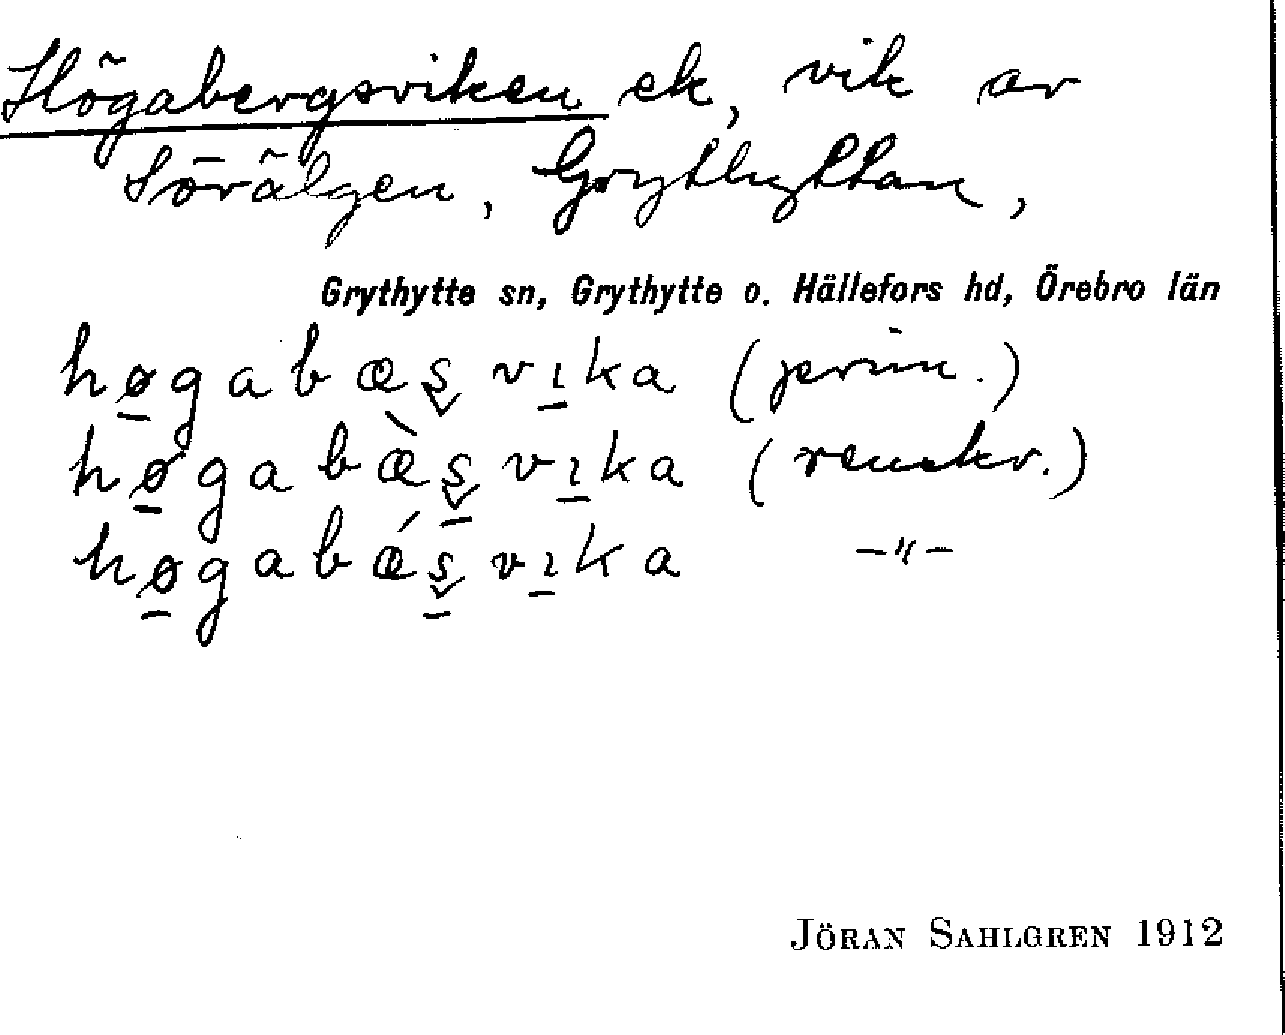 Högabergsviken ek, vik av
Sörälgen, Grythyttan,
Grythytte sn, Grythytte o. Hällefors hd, Örebro län
høgabæʂvıka (prim.)
høgabæ̀ʂvıka (renskr.)
høgabǽʂvıka –"–
JÖRAN SAHLGREN 1912